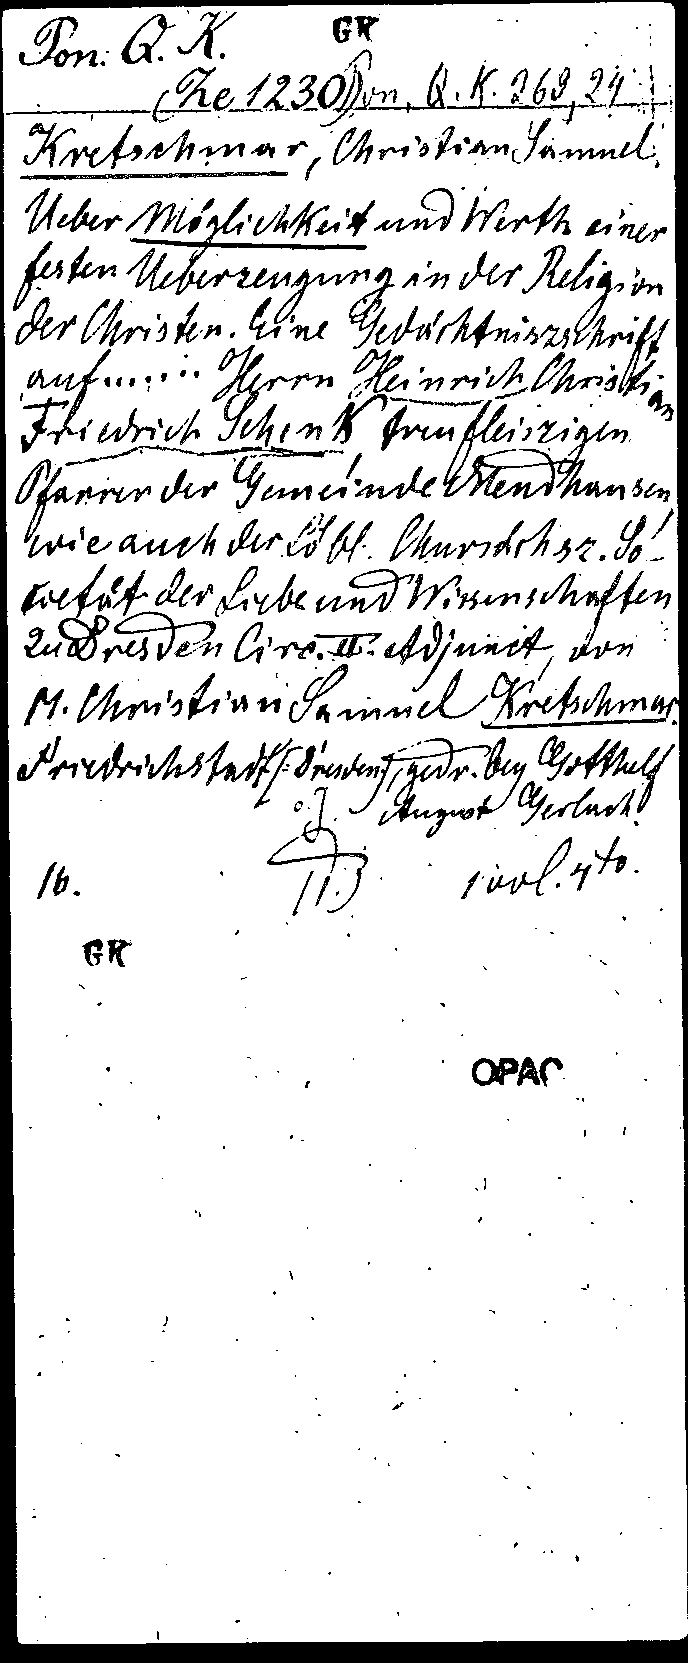 Pon. Q. K.
GK
(Ze 1230) Pon. Q. K. 268, 24
Kretschmar, Christian Samuel.
Ueber Möglichkeit und Werth einer
festen Ueberzeugung in der Religion
der Christen. Eine Gedächtniszschrift
auf ..... Herrn Heinrich Christian
Friedrich Schenk treufleiszigen
Pfarrer der Gemeinde Mendhausen,
wie auch der Löbl. Chursächsz. So-
cietät der Liebe und Wissenschaften
zu Dresden Circ. II. Adjunct, von
M. Christian Samuel Kretschmar.
Friedrichstadt (: Dresden), gedr. bey Gotthelf
August Gerlach.
o. J.
16.
1 vol. 4to.
GK
OPAC